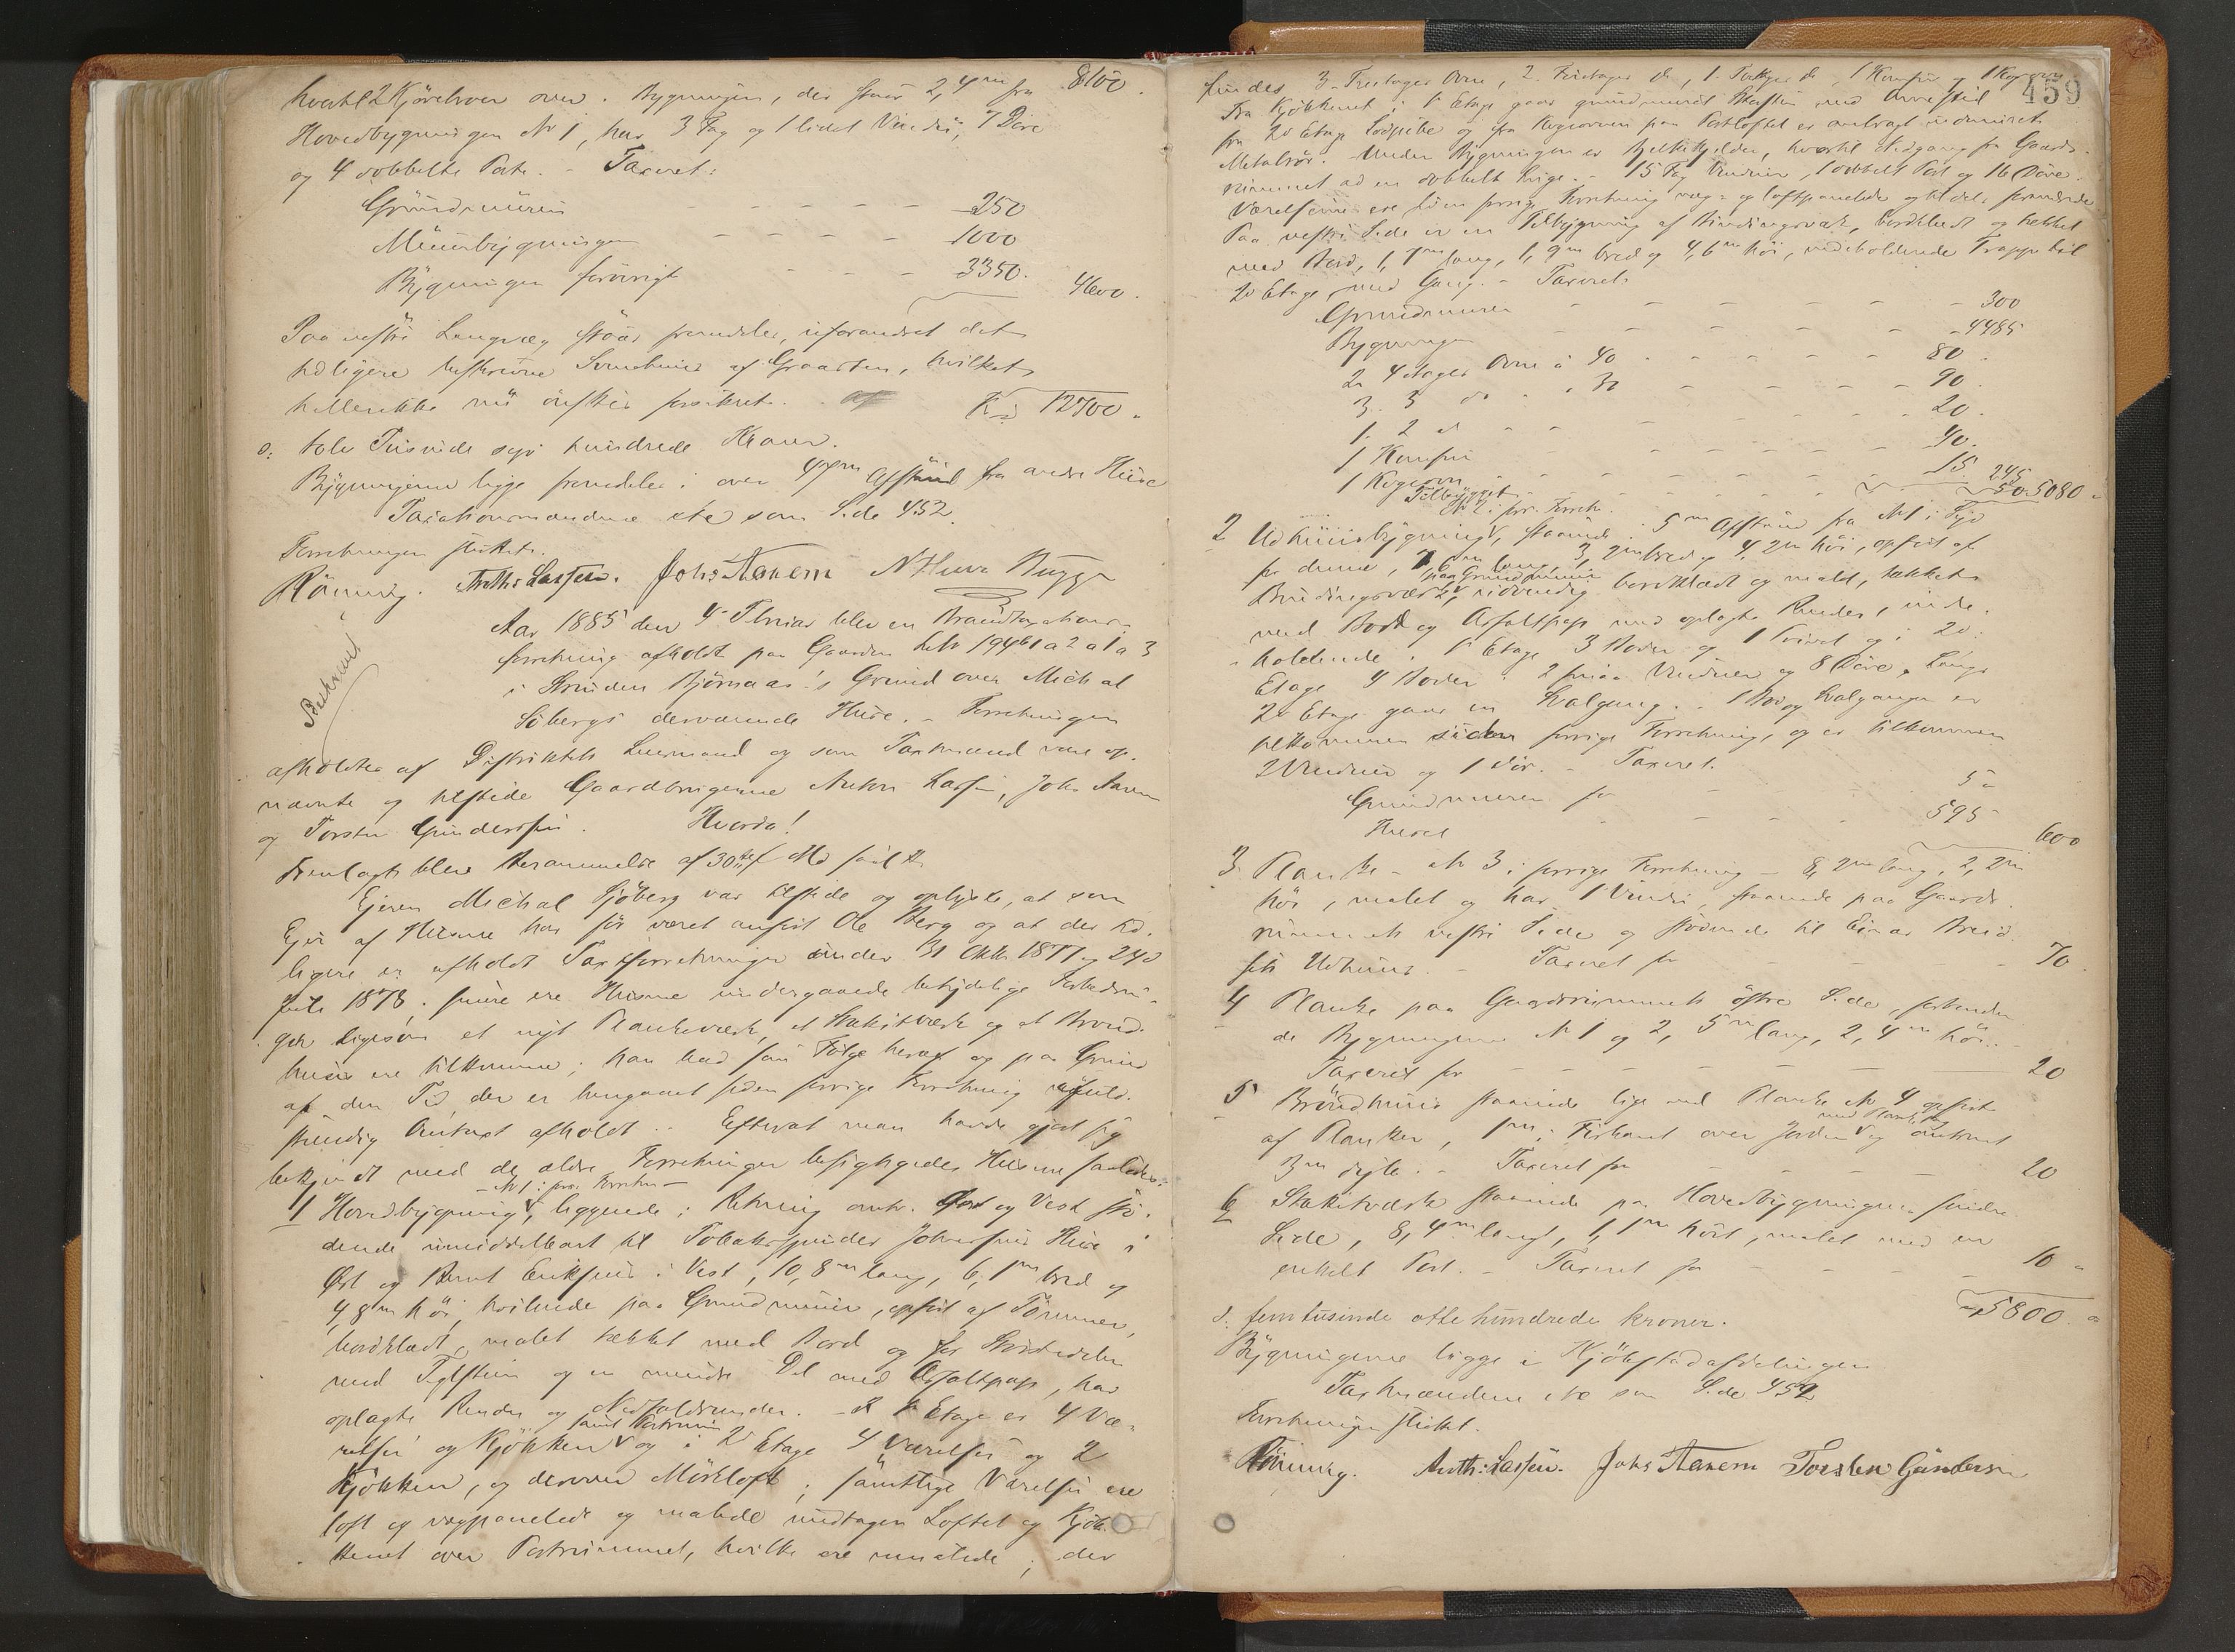 hvortil 2 Kjørebroer over. Bygningen, der staar 2,4 m fra 8100.
Hovedbygningen No 1, har 3 Fag og 1 lidet Vindu, 7 Døre
og 4 dobbelte Porte. - Taxeret:
Grundmuren - - - - - 250
Muurbygningen - - - - - 1000
Bygningen forøvrigt - - - - 3350. 4600.
Paa vestre Langvæg staar fremdeles, uforandret det
tidligere beskrevne Svinehuus af Graasten, hvilket
hellerikke nu ønskes forsikret. Kr 12700.
o: tolv Tusinde syv hundrede Kroner.
Bygningerne ligge fremdeles i over Afstand fra andre Huse
Taxationsmændene etc som Side 452.
Forretningen sluttet.
Rönning. Anth: Lassen. Johs Aanem N Huva Bugge
Aar 1885 den 4 Februar blev en Brandtaxations-
forretning afholdt paa Gaarden
i Strinden Bjørnaas's Grund over Michal
Söbergs derværende Huse. - Forretningen
afholdtes af Distriktets Lensmand og som Taxtmænd vare op-
nævnte og tilstede Gaardbrugerne Anton Lassen, Johs Aanem
og Torsten Gundersen. Hvorda!
Fremlagt blev Berammelse af 30te f. Md
Ejeren Michal Sjöberg var tilstede og oplyste, at som
Ejer af Husene har før været anført Ole Berg og at der tid-
ligere er afholdt Taxtforretninger under 31 Oktbr 1877 og 24o
Juli 1878; senere ere Husene undergaaede betydelige Forbedrin-
ger ligesom et nyt Plankeværk, et Stakitværk og et Brønd-
huus ere tilkomne; han bad som Følge heraf og paa Grund
af den Tid, der er hengaaet siden forrige Forretning
stændig Omtaxt afholdt. - Efterat man havde gjort sig
bekjendt med de ældre Forretninger besigtigedes Husene saaledes:
- No 1 i forr. Forretn. -
1 Hovedbygning, liggende i Retning omtr. Øst og Vest stø-
dende umiddelbart til Tobaksspinder Johnsens Huse i
Øst og Bernt Eriksens i Vest, 10,8 m lang, 6,1 m bred og
4,8 m høi, hvilende paa Grundmuur, opført af Tømmer,
bordklædt, malet tækket med Bord og for Størstedelen
med Teglsteen og en mindre Del med Asfaltpap, har
oplagte Render og Nedfaldsrender. - I 1e Etage er 4 Væ-
relser og Kjøkken samt Portrum og i 2 Etage 4 Værelser og 2
Kjøkken, og derover Mørkloft; samtlige Værelser ere
loft og vægpanelede og malede undtagen Loftet og Kjøk-
kenet over Portrummet, hvilke ere umalede; der
459
findes 3 Treetages Ovne, 2 Fireetages do, 1 Toetages do, 1 Komfur og 1 Kogeovn
Fra Kjøkkenet i 1e Etage gaar grundmuret Skorsten med Arnested
fra 2de Etage Sodpibe og fra Kogeovnen paa Portloftet er anbragt indmuret
Metalrør. Under Bygningen er Kjelder, hvortil Nedgang fra Gaards-
rummet ad en dobbelt Luge. - 15 Fag Vinduer, 1 dobbelt Port og 16 Døre.
Værelserne ere siden forrige Forretning væg- og loftpanelede og tildels
Paa vestre Side er en Tilbygning af Bindingsværk, bordklædt og tækket
med Bord, 1,7 m lang, 1,9 m bred og 4,6 m høi, indeholdende Trappe til
2de Etage med Gang. - Taxeret:
Grundmuren - - - - - 300
Bygningen - - - - - 4485
2 4 etages Ovne à 40 - - - - 80.
3. 3 do " 30 - - - - 90.
1. 2 do - - - - 20.
1 Komfur - - - - 40.
1 Kogeovn - - - - 15 245
Tilbygget - - - - 50 5080
No 2 i forr. Forretn.
2 Udhuusbygning, staaende i 5 m Afstand fra No 1 i Syd
for denne, lang, 3,2 m bred og 4,2 m høi, opført af
Bindingsværk paa Grundmuur, udvendig bordklædt og malet, tækket
med Bord og Asfaltpap med oplagte Render, inde-
holdende i 1e Etage 3 Boder og 1 Privet og i 2de
Etage 4 Boder. 2 smaa Vinduer og 8 Døre. Langs
2de Etage gaar en Svalgang. - 1 Bod og Svalgangen er
tilkommen siden forrige Forretning, og er tilkommen
2 Vinduer og 1 Dør. - Taxeret.
Grundmuren for - - - 5
Huset - - - 595 600
3. Planke - No 3 i forrige Forretning - 8,2 m lang, 2,2 m
høi, malet og har 1 Vindu, staaende paa Gaards-
rummets vestre Side og stødende til Einar Breid-
sets Udhuus. - Taxeret for - - - 70.
4 Planke paa Gaardsrummets østre Side, forbinden-
de Bygningerne No 1 og 2, 5 m lang, 2,4 m høi. -
Taxeret for - - - 20
5 Brøndhuus staaende lige ved Planke No 4 opført
af Planker, 1 m i Firkant over Jorden med Planketag og omtrent
3 m dyb. - Taxeret for - - - 20
6 Stakitværk staaende paa Hovedbygningens søndre
Side, 8,4 m langt, 1,1 m høit, malet med en
enkelt Port. - Taxeret for - - - 10
5800
o: femtusinde otte hundrede kroner.
Bygningerne ligge i Kjøbstadafdelingen
Taxtmændene etc som Side 452
Forretningen sluttet.
Rönning. Anth: Lassen. Johs Aanem Torsten Gundersen